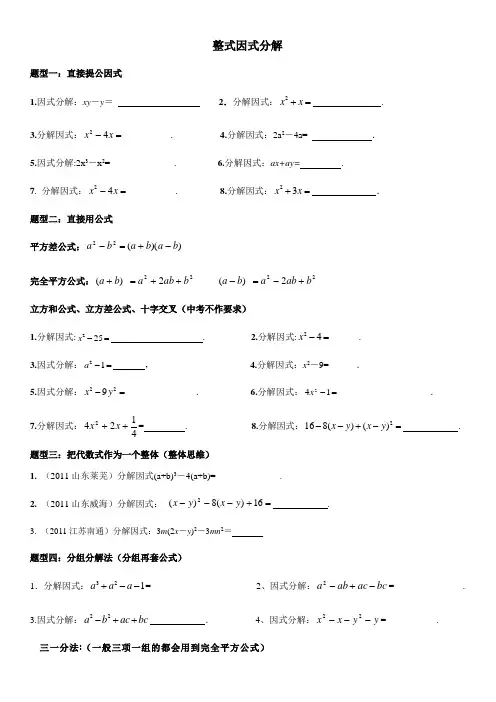 整式因式分解
题型一：直接提公因式
1.因式分解：xy－y＝            2．分解因式：x²+x=            .
3.分解因式：x²－4x=            .            4.分解因式：2a²－4a=            ．
5.因式分解:2x³－x²=            .            6.分解因式：ax+ay=            .
7. 分解因式：x²－4x=            .            8.分解因式：x²+3x=            ．
题型二：直接用公式
平方差公式：a²－b²=(a+b)(a－b)
完全平方公式：(a+b) =a²+2ab+b²            (a－b) =a²－2ab+b²
立方和公式、立方差公式、十字交叉（中考不作要求）
1.分解因式: x²－25=            .            2.分解因式: x²－4=            .
3.因式分解：a²－1=            ,            4.分解因式：x²－9=            .
5.因式分解：x²－9y²=            .            6.分解因式：4x²－1=            .
7.分解因式：4x²+2x+1/4=            .            8.分解因式：16－8(x－y)+(x－y)²=            .
题型三：把代数式作为一个整体（整体思维）
1. （2011山东莱芜）分解因式(a+b)³－4(a+b)=            .
2. （2011山东威海）分解因式： (x－y)²－8(x－y)+16=            .
3. （2011江苏南通）分解因式：3m(2x－y)²－3mn²＝
题型四：分组分解法（分组再套公式）
1．分解因式：a³+a²－a－1=            2、因式分解：a²－ab+ac－bc=            .
3.因式分解：a²－b²+ac+bc            .            4、因式分解：x²－x－y²－y=            .
三一分法：（一般三项一组的都会用到完全平方公式）